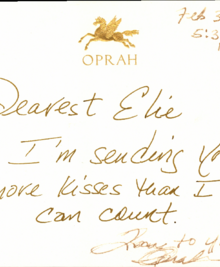 OPRAH
Feb 3
5:3
Dearest Elie
I'm sending yo
more kisses than I
can count.
to y